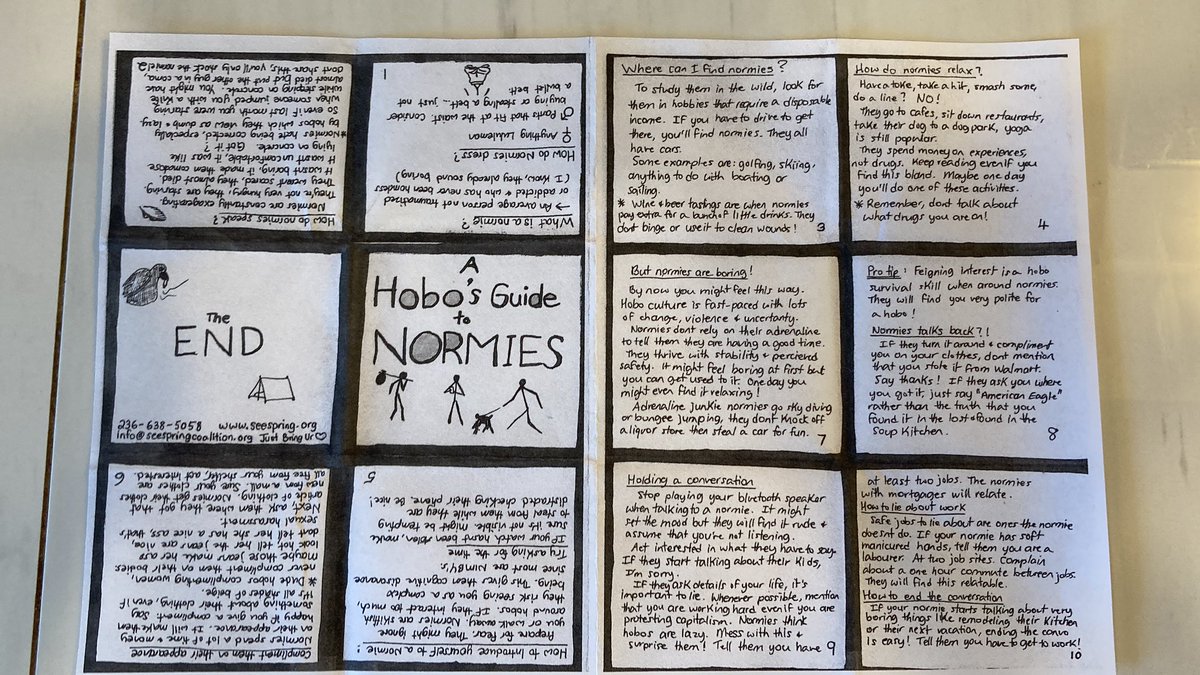 A
Hobo's Guide
to
NORMIES
What is a normie?
→ An average person not traumatized
or addicted & who has never been homeless
(I know, they already sound boring)
How do Normies dress?
♀ Anything Lululemon
♂ Pants that fit at the waist. Consider
buying or stealing a belt... just not
a bullet belt
1
How do normies speak?
Normies are constantly exagerating.
They're not very hungry, they are starving.
They weren't scared, they almost died.
It wasn't boring, it made them comatose.
It wasn't uncomfortable, it was like
lying on concrete. Got it?
*Normies hate being corrected, especially
by hobos which they view as dumb & lazy
So even if last month you were starving
when someone jumped you with a knife
while sleeping on concrete. You might have
almost died but put the other guy in a coma.
dont share this, you'll only shock the normie!
2
Where can I find normies?
To study them in the wild, look for
them in hobbies that require a disposable
income. If you have to drive to get
there, you'll find normies. They all
have cars.
Some examples are: golfing, skiing,
anything to do with boating or
sailing.
* Wine & beer tastings are when normies
pay extra for a bunch of little drinks. They
dont binge or use it to clean wounds!
3
How do normies relax?
Have a toke, take a hit, smash some,
do a line? NO!
They go to cafes, sit down restaurants,
take their dog to a dog park, yoga
is still popular.
They spend money on experiences,
not drugs. Keep reading even if you
find this bland. Maybe one day
you'll do one of these activities.
* Remember, dont talk about
what drugs you are on!
4
How to Introduce yourself to a Normie:
Prepare for fear. They might ignore
you or walk away. Normies are skittish
around hobos. If they interact too much,
they risk seeing you as a complex
being. This gives them cognitive dissonance
since most are NIMBY's
Try asking for the time
If your watch hasn't been stolen, make
sure it's not visible. It might be tempting
to steal from them while they are
distracted checking their phone. Be nice!
5
Compliment them on their appearance
Normies spend a lot of time & money
on their appearance. It will make them
happy if you give a compliment. Say
something about their clothing, even if
it's all shades of beige.
* Dude hobos complimenting women,
never compliment them on their bodies
maybe those jeans make her ass
look hot, tell her the jeans are nice,
dont tell her she has a nice ass, that's
sexual harassment.
Next, ask them where they got that
article of clothing. Normies get their clothes
new from a mall. Sure your clothes are
all free from your shelter, act interested.
6
But normies are boring!
By now you might feel this way.
Hobo culture is fast-paced with lots
of change, violence & uncertanty.
Normies dont rely on their adrenaline
to tell them they are having a good time.
They thrive with stability & percieved
safety. It might feel boring at first but
you can get used to it. One day you
might even find it relaxing!
Adrenaline junkie normies go sky diving
or bungee jumping, they dont knock off
a liquor store then steal a car for fun.
7
Pro tip: Feigning interest is a hobo
survival skill when around normies.
They will find you very polite for
a hobo!
Normies talks back?!
If they turn it around & compliment
you on your clothes, dont mention
that you stole it from Walmart.
Say thanks! If they ask you where
you got it, just say "American Eagle"
rather than the truth that you
found it in the lost & found in the
Soup Kitchen.
8
Holding a conversation
Stop playing your bluetooth speaker
when talking to a normie. It might
set the mood but they will find it rude &
assume that you're not listening.
Act interested in what they have to say.
If they start talking about their kids,
I'm sorry.
If they ask details of your life, it's
important to lie. Whenever possible, mention
that you are working hard even if you are
protesting capitalism. Normies think
hobos are lazy. Mess with this &
surprise them! Tell them you have
9
at least two jobs. The normies
with mortgages will relate.
How to lie about work
Safe jobs to lie about are ones the normie
doesnt do. If your normie has soft
manicured hands, tell them you are a
labourer. At two job sites. Complain
about a one hour commute between jobs.
They will find this relatable.
How to end the conversation
If your normie starts talking about very
boring things like remodeling their kitchen
or their next vacation, ending the convo
is easy! Tell them you have to get to work!
10
The
END
236-638-5058 www.seespring.org
info@seespringcoalition.org Just Bring Ur♡